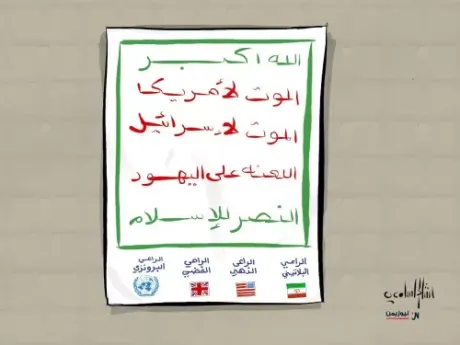 الله اكبر
الموت لأمريكا
الموت لاسرائيل
اللعنة على اليهود
النصر للإسلام
الراعي البلاتيني
الراعي الذهبي
الراعي الفضي
الراعي البرونزي